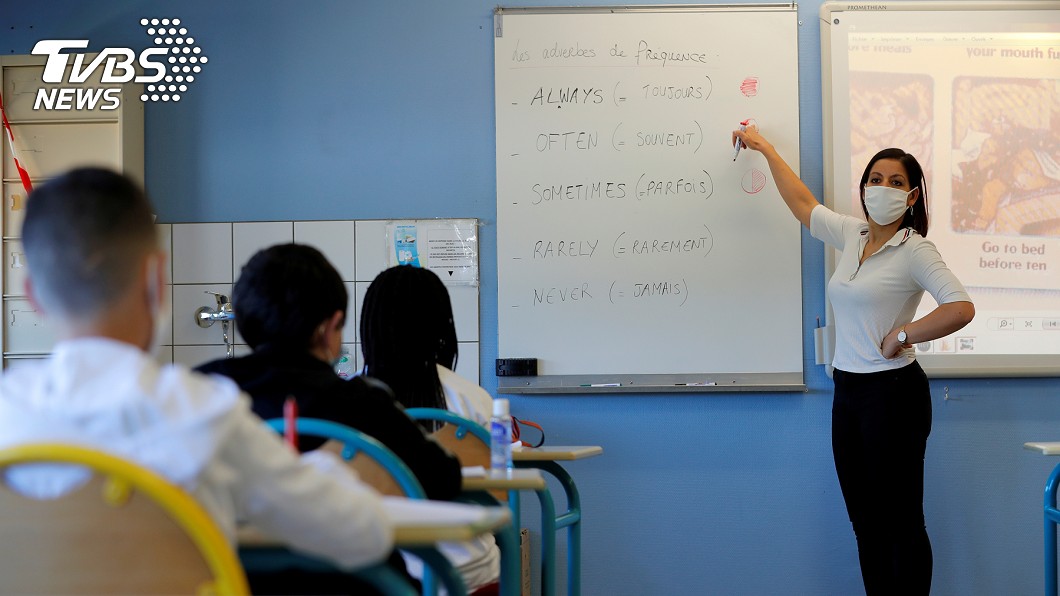 TVBS
NEWS
Les adverbes de fréquence.
- ALWAYS (= TOUJOURS)
- OFTEN (= SOUVENT)
- SOMETIMES (=PARFOIS)
- RARELY (= RAREMENT)
- NEVER (= JAMAIS)
PROMETHEAN
your mouth fu
Go to bed
before ten